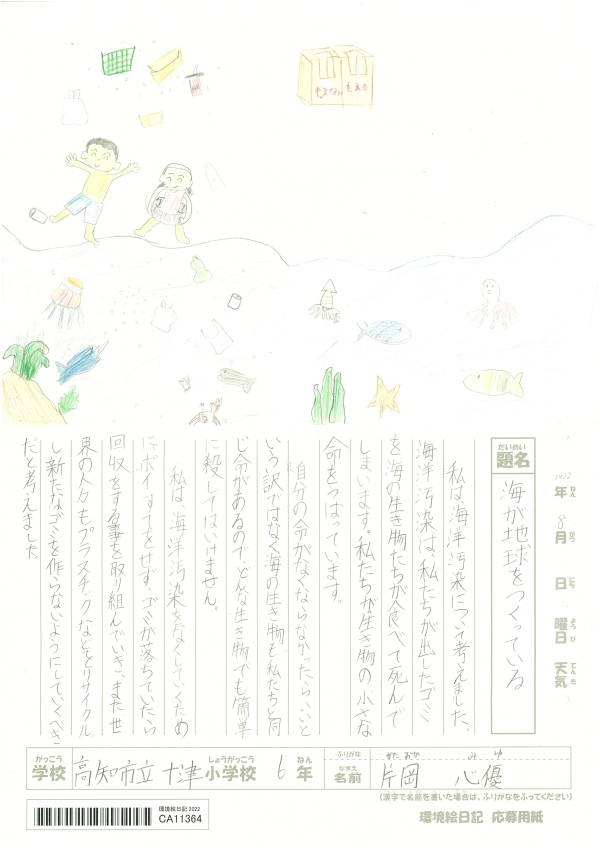 もえない
もえる
だいめい
題名
海が地球をつくっている
2022
年
ねん
8
月
がつ
日
にち
曜日
ようび
天気
てんき
私は、海洋汚染について考えました。
海洋汚染は、私たちが出したゴミ
を海の生き物たちが食べて死んで
しまいます。私たちが生き物の小さな
命をうばっています。
自分の命がなくならなかったらいいと
いう訳ではなく海の生き物も私たちと同
じ命があるので、どんな生き物でも簡単
に殺してはいけません。
私は、海洋汚染をなくしていくため
に、ポイすてをせず、ゴミが落ちていたら
回収をする事を取り組んでいき、また世
界の人々もプラスチックなどをリサイクル
し新たなゴミを作らないようにしていくべき
だと考えました。
がっこう
学校
高知市立 十津
しょうがっこう
小学校
6
ねん
年
ふりがな
かたおか みゆ
なまえ
名前
片岡 心優
(漢字で名前を書いた場合は、ふりがなをふってください)
環境絵日記 2022
CA11364
環境絵日記 応募用紙